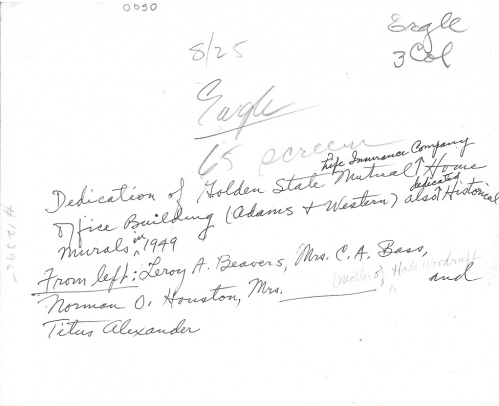 0050
Eagle
3 Col
8/25
Eagle
65 screen
Life Insurance Company
Dedication of Golden State Mutual ↑ Home
dedicated
Office Building (Adams + Western) also ↑ Historical
in
Murals ^ 1949
From left: Leroy A. Beavers, Mrs. C. A. Bass,
(mother of Hale Woodruff
Norman O. Houston, Mrs. ________ ^ and
Titus Alexander